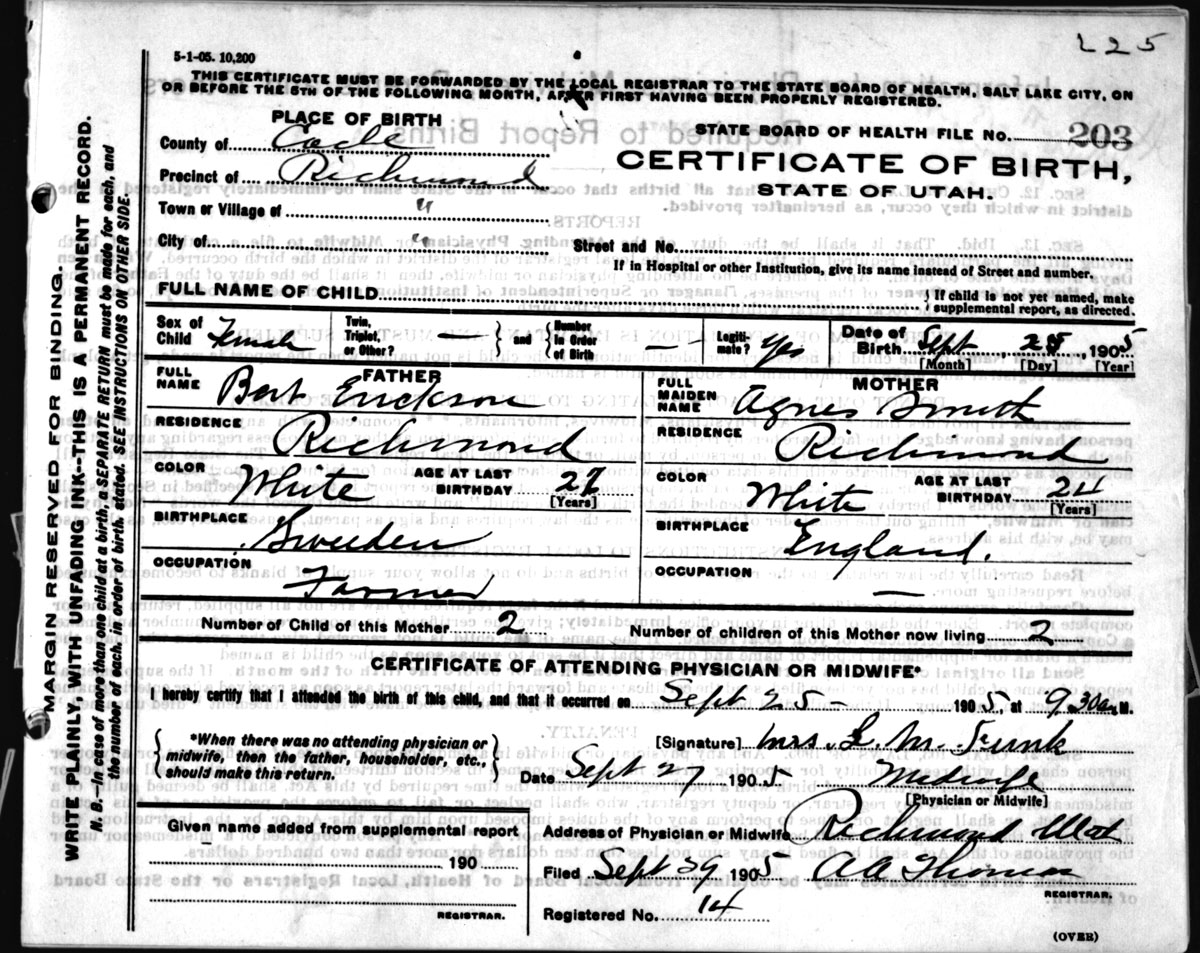 225
5-1-05. 10,200
THIS CERTIFICATE MUST BE FORWARDED BY THE LOCAL REGISTRAR TO THE STATE BOARD OF HEALTH, SALT LAKE CITY, ON
OR BEFORE THE 5TH OF THE FOLLOWING MONTH, AFTER FIRST HAVING BEEN PROPERLY REGISTERED.
PLACE OF BIRTH
STATE BOARD OF HEALTH FILE NO. 203
County of Cache
CERTIFICATE OF BIRTH,
Precinct of Richmond
STATE OF UTAH.
Town or Village of "
City of " Street and No.
If in Hospital or other Institution, give its name instead of Street and number.
FULL NAME OF CHILD } If child is not yet named, make
supplemental report, as directed.
Sex of Child Female Twin, Triplet, or Other? — } and { Number in Order of Birth — Legitimate? Yes Date of Birth Sept 25, 1905
[Month] [Day] [Year]
FATHER
FULL NAME Bert Erickson
RESIDENCE Richmond
COLOR White AGE AT LAST BIRTHDAY 27
[Years]
BIRTHPLACE Sweden
OCCUPATION Farmer
MOTHER
FULL MAIDEN NAME Agnes Smith
RESIDENCE Richmond
COLOR White AGE AT LAST BIRTHDAY 24
[Years]
BIRTHPLACE England.
OCCUPATION —
Number of Child of this Mother 2 Number of children of this Mother now living 2
CERTIFICATE OF ATTENDING PHYSICIAN OR MIDWIFE*
I hereby certify that I attended the birth of this child, and that it occurred on Sept 25 - 1905, at 9.30 a. M.
{ *When there was no attending physician or
midwife, then the father, householder, etc.,
should make this return. }
[Signature] Mrs. L. M. Funk
Date Sept 27 1905 Midwife
[Physician or Midwife]
Given name added from supplemental report
190
REGISTRAR.
Address of Physician or Midwife Richmond Utah
Filed Sept 29 1905 AA Thomas
REGISTRAR.
Registered No. 14
(OVER)
MARGIN RESERVED FOR BINDING.
WRITE PLAINLY, WITH UNFADING INK--THIS IS A PERMANENT RECORD.
N. B.--In case of more than one child at a birth, a SEPARATE RETURN must be made for each, and
the number of each, in order of birth, stated. SEE INSTRUCTIONS ON OTHER SIDE.